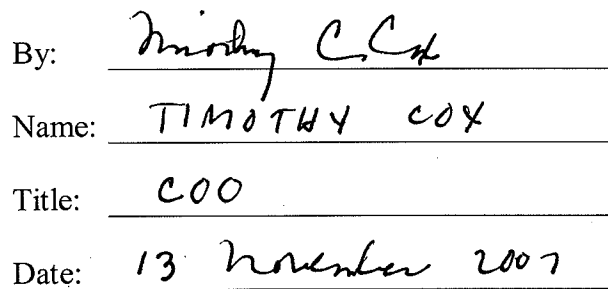 By: Timothy C. Cox
Name: TIMOTHY COX
Title: COO
Date: 13 November 2007